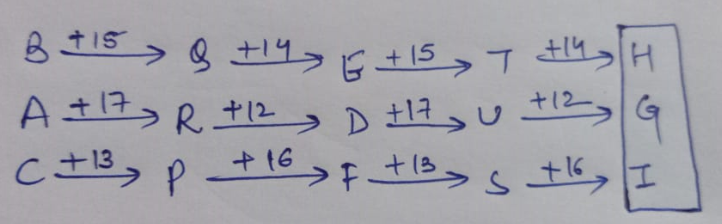 B +15 Q +14 E +15 T +14 H
A +17 R +12 D +17 U +12 G
C +13 P +16 F +13 S +16 I